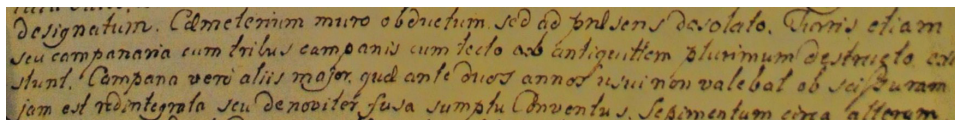 designatum. Cæmeterium muro obductum sed ad præsens desolato. Turris etiam
seu campanaria cum tribus campanis cum tecto ab antiquittem plurimum destructo
stunt. Campana vero aliis major, quæ ante duos annos usui non valebat ob scissuram
jam est redintegrata seu denoviter fusa sumptu Conventus. Sepimentum circa alteram